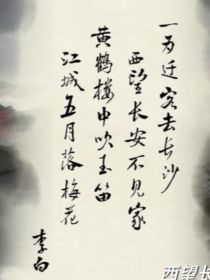 一为迁客去长沙
西望长安不见家
黄鹤楼中吹玉笛
江城五月落梅花
李白
西望长